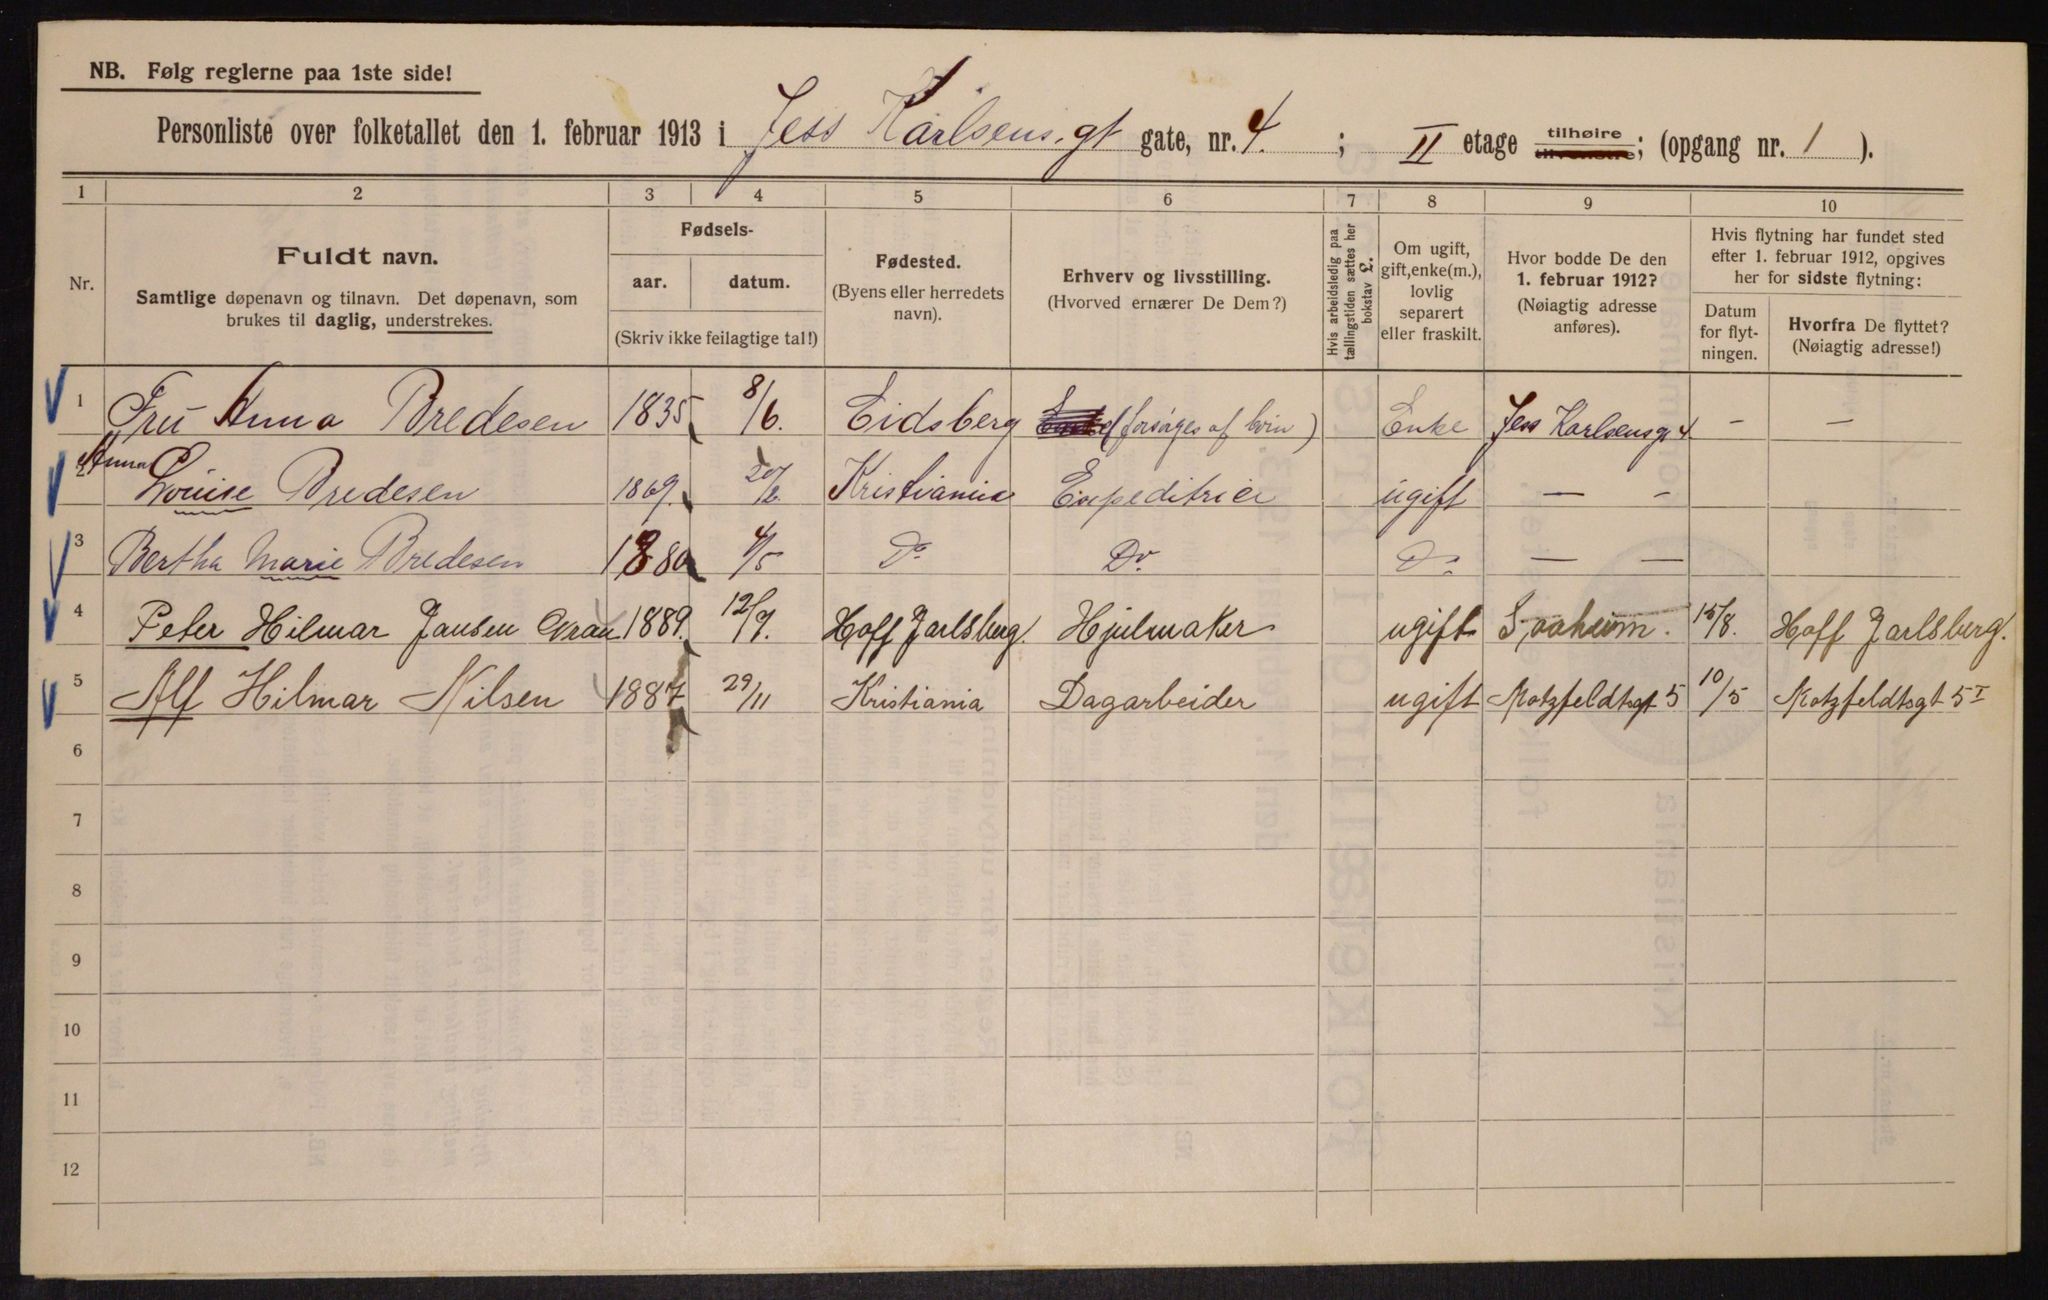 NB. Følg reglerne paa 1ste side!
Personliste over folketallet den 1. februar 1913 i Jess Karlsens.gt gate, nr. 4. ; II etage tilhøire tilvenstre; (opgang nr. 1 ).
1 2 3 4 5 6 7 8 9 10
Nr.
Fuldt navn.
Samtlige døpenavn og tilnavn. Det døpenavn, som
brukes til daglig, understrekes.
Fødsels-
aar. datum.
(Skriv ikke feilagtige tal!)
Fødested.
(Byens eller herredets
navn).
Erhverv og livsstilling.
(Hvorved ernærer De Dem?)
Hvis arbeidsledig paa
tællingstiden sættes her
bokstav L.
Om ugift,
gift, enke(m.),
lovlig
separert
eller fraskilt.
Hvor bodde De den
1. februar 1912?
(Nøiagtig adresse
anføres).
Hvis flytning har fundet sted
efter 1. februar 1912, opgives
her for sidste flytning:
Datum
for flyt-
ningen.
Hvorfra De flyttet?
(Nøiagtig adresse!)
1 Fru Anna Bredesen 1835 8/6. Eidsberg (forsørges af børn) Enke Jess Karlsensgt 4 – –
2 Anna Louise Bredesen 1869. Kristiania Expeditrice ugift – –
3 Bertha Marie Bredesen 1880 4/5 Do Do Do – –
4 Peter Hilmar Jansen Grau 1889. 12/9. Hoff Jarlsberg Hjulmaker ugift 15/8. Hoff Jarlsberg.
5 Alf Hilmar Nilsen 1887 29/11 Kristiania Dagarbeider ugift Motzfeldtsgt 5 10/5 Motzfeldtsgt 5 I
6
7
8
9
10
11
12